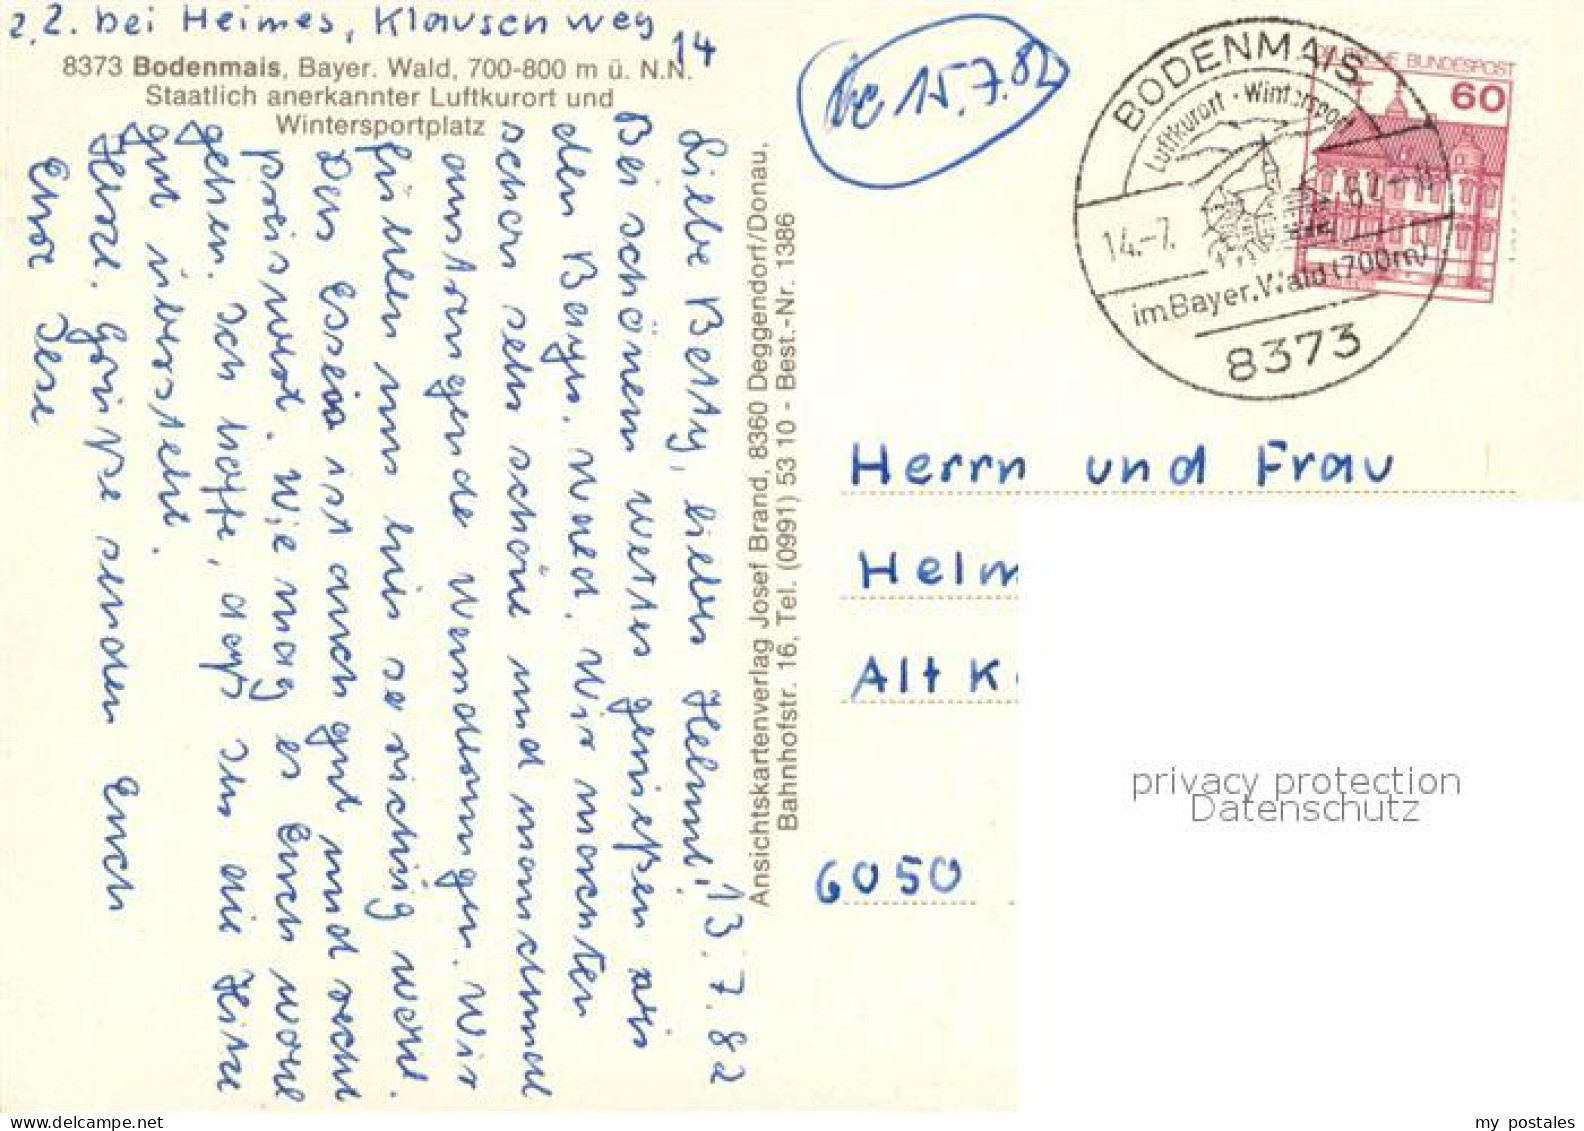 z. Z. bei Heimes, Klauschenweg
14
8373 Bodenmais, Bayer. Wald, 700-800 m ü. N.N.
Staatlich anerkannter Luftkurort und
Wintersportplatz
13.7.82
Liebe Betty, lieber Helmut!
Bei schönem Wetter genießen wir
den Bayr. Wald. Wir machten
schon sehr schöne und manchmal
anstrengende Wanderungen. Wir
fühlen uns hier so richtig wohl.
Das Essen ist auch gut und recht
preiswert. Wie mag es Euch wohl
gehen. Ich hoffe, daß Ihr die Hitze
gut übersteht.
Herzl. Grüße senden Euch
Eure
Ansichtskartenverlag Josef Brand, 8360 Deggendorf/Donau,
Bahnhofstr. 16, Tel. (0991) 53 10 - Best.-Nr. 1386
15.7.82
BODENMAIS
Luftkurort · Wintersport
14.-7.
82-11
im Bayer. Wald (700m)
8373
DEUTSCHE BUNDESPOST
60
Herrn und Frau
Helm
Alt K
6050
privacy protection
Datenschutz
www.delcampe.net
my postales